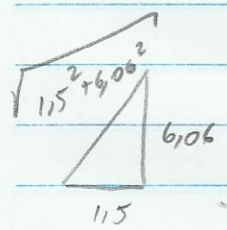 √1,5²+6,06²
6,06
1,5